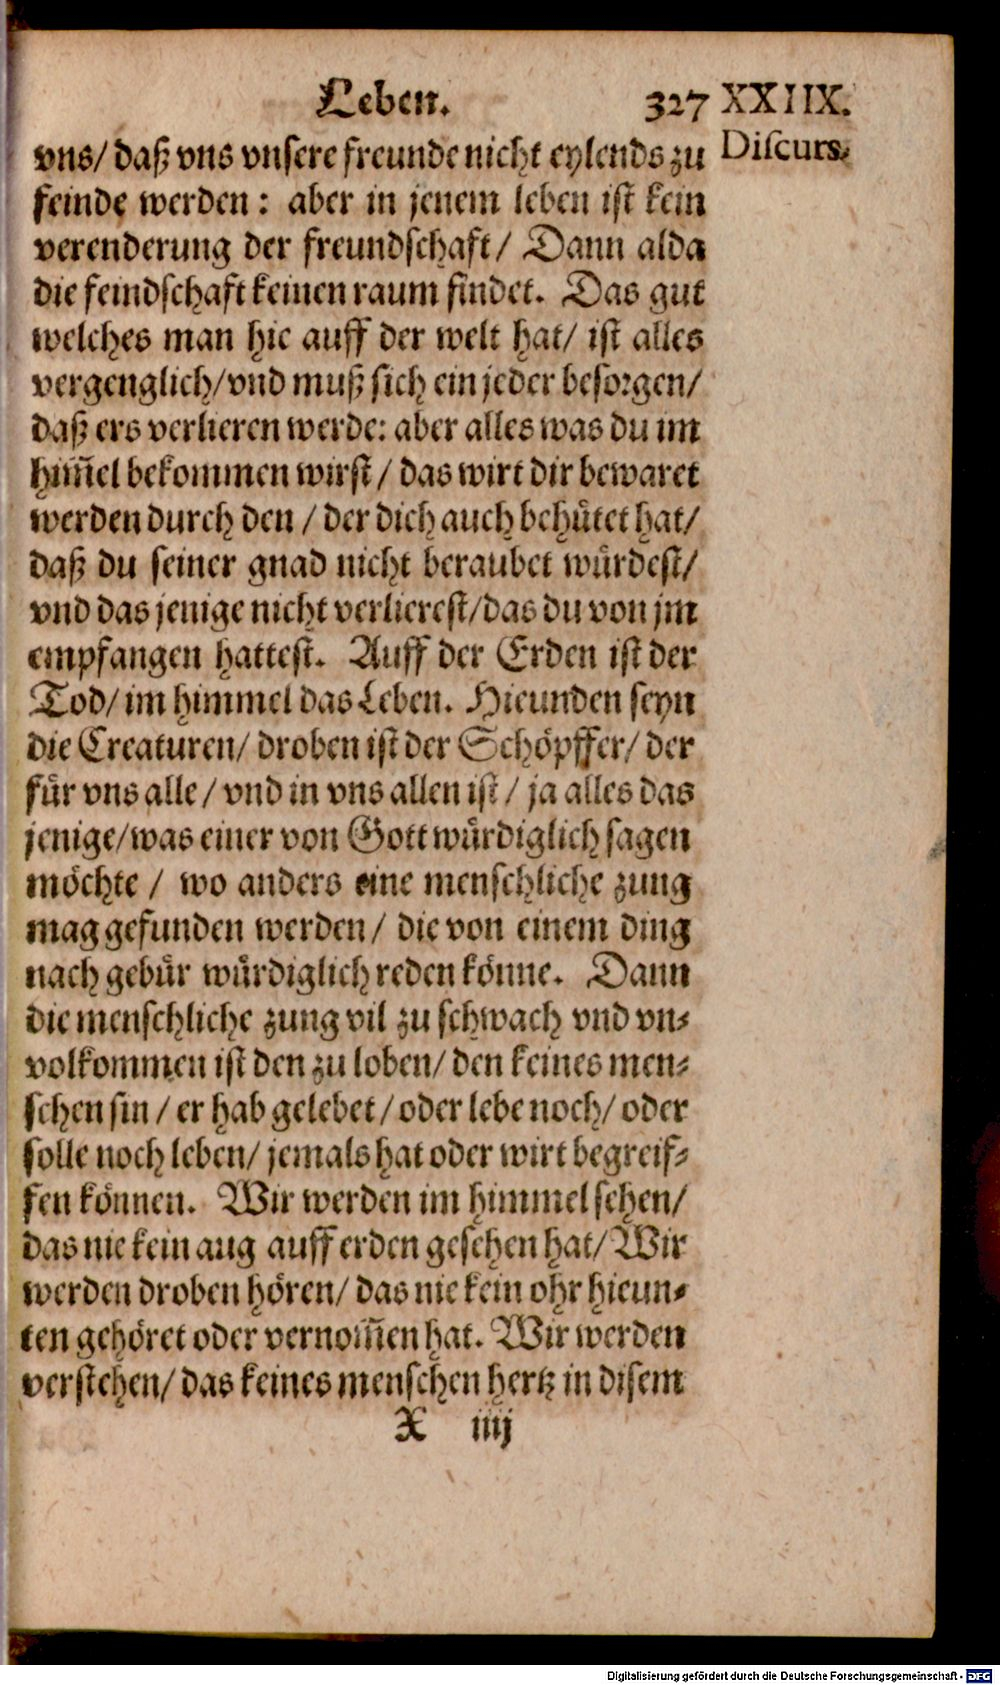 Leben. 327 XXIIX.
Discurs.
vns/ daß vns vnsere freunde nicht eylends zu
feinde werden : aber in jenem leben ist kein
verenderung der freundschaft/ Dann alda
die feindschaft keinen raum findet. Das gut
welches man hie auff der welt hat/ ist alles
vergenglich/vnd muß sich ein jeder besorgen/
daß ers verlieren werde: aber alles was du im
him̅el bekommen wirst / das wirt dir bewaret
werden durch den / der dich auch behuͤtet hat/
daß du seiner gnad nicht beraubet wuͤrdest/
vnd das jenige nicht verlierest/das du von jm
empfangen hattest. Auff der Erden ist der
Tod/ im himmel das Leben. Hieunden seyn
die Creaturen/ droben ist der Schoͤpffer/ der
fuͤr vns alle / vnd in vns allen ist / ja alles das
jenige/was einer von Gott wuͤrdiglich sagen
moͤchte / wo anders eine menschliche zung
mag gefunden werden/ die von einem ding
nach gebuͤr wuͤrdiglich reden koͤnne. Dann
die menschliche zung vil zu schwach vnd vn-
volkommen ist den zu loben/ den keines men-
schen sin / er hab gelebet / oder lebe noch/ oder
solle noch leben/ jemals hat oder wirt begreif-
fen koͤnnen. Wir werden im himmel sehen/
das nie kein aug auff erden gesehen hat/ Wir
werden droben hoͤren/ das nie kein ohr hieun-
ten gehoͤret oder vernom̅en hat. Wir werden
verstehen/ das keines menschen hertz in disem
X iiij
Digitalisierung gefördert durch die Deutsche Forschungsgemeinschaft - DFG